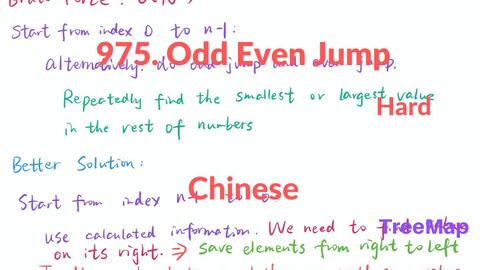 Brute Force: O(N²)
Start from index 0 to n-1:
975. Odd Even Jump
Alternatively. do odd jump and even jump.
Repeatedly find the smallest or largest value
Hard
in the rest of numbers
Better Solution:
Chinese
Start from index n-1 to 0
TreeMap
use calculated information. We need to
on its right. ⇒ save elements from right to left